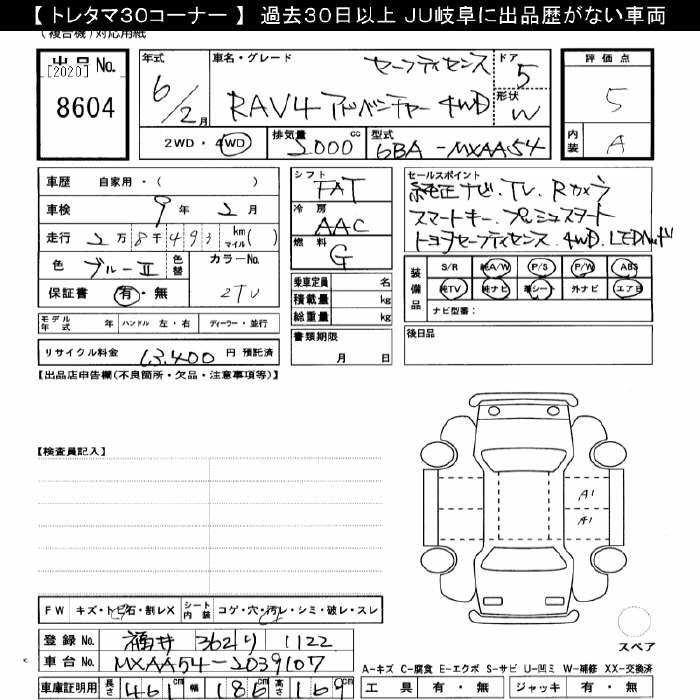 【 トレタマ30コーナー 】 過去30日以上 JU岐阜に出品歴がない車両
(複合機)対応用紙
出品 No.
[2020]
8604
年式
6/2月
車名・グレード
セーフティセンス
RAV4 アドベンチャー 4WD
ドア
5
形状
W
2WD・4WD
排気量
2000 cc
型式
6BA-MXAA54
評価点
5
内装
A
車歴 自家用・( )
車検 9年 2月
走行 2万8千493 km マイル( )
色 ブルーⅡ 色替 カラーNo.
保証書 有・無 2TU
シフト
FAT
冷房
AAC
燃料
G
乗車定員 名
積載量 kg
総重量 kg
書類期限
月 日
セールスポイント
純正ナビ.TV.Rカメラ
スマートキー.プッシュスタート
トヨタセーフティセンス.4WD.LED
装備品
S/R 純A/W P/S P/W ABS
純TV 純ナビ 革シート 外ナビ エアB
ナビ型番:
後日品
モデル年式 年 ハンドル 左・右 ディーラー・並行
リサイクル料金 13,400 円 預託済
【出品店申告欄(不良箇所・欠品・注意事項等)】
【検査員記入】
A1
A1
FW キズ・トビ石・割レX シート内装 コゲ・穴・汚レ・シミ・破レ・スレ
登録 No. 福井 362 り 1122
車台 No. MXAA54-2039107
車庫証明用 長さ 461cm 幅 186cm 高さ 169cm
スペア
A-キズ C-腐食 E-エクボ S-サビ U-凹ミ W-補修 XX-交換済
工具 有・無 ジャッキ 有・無